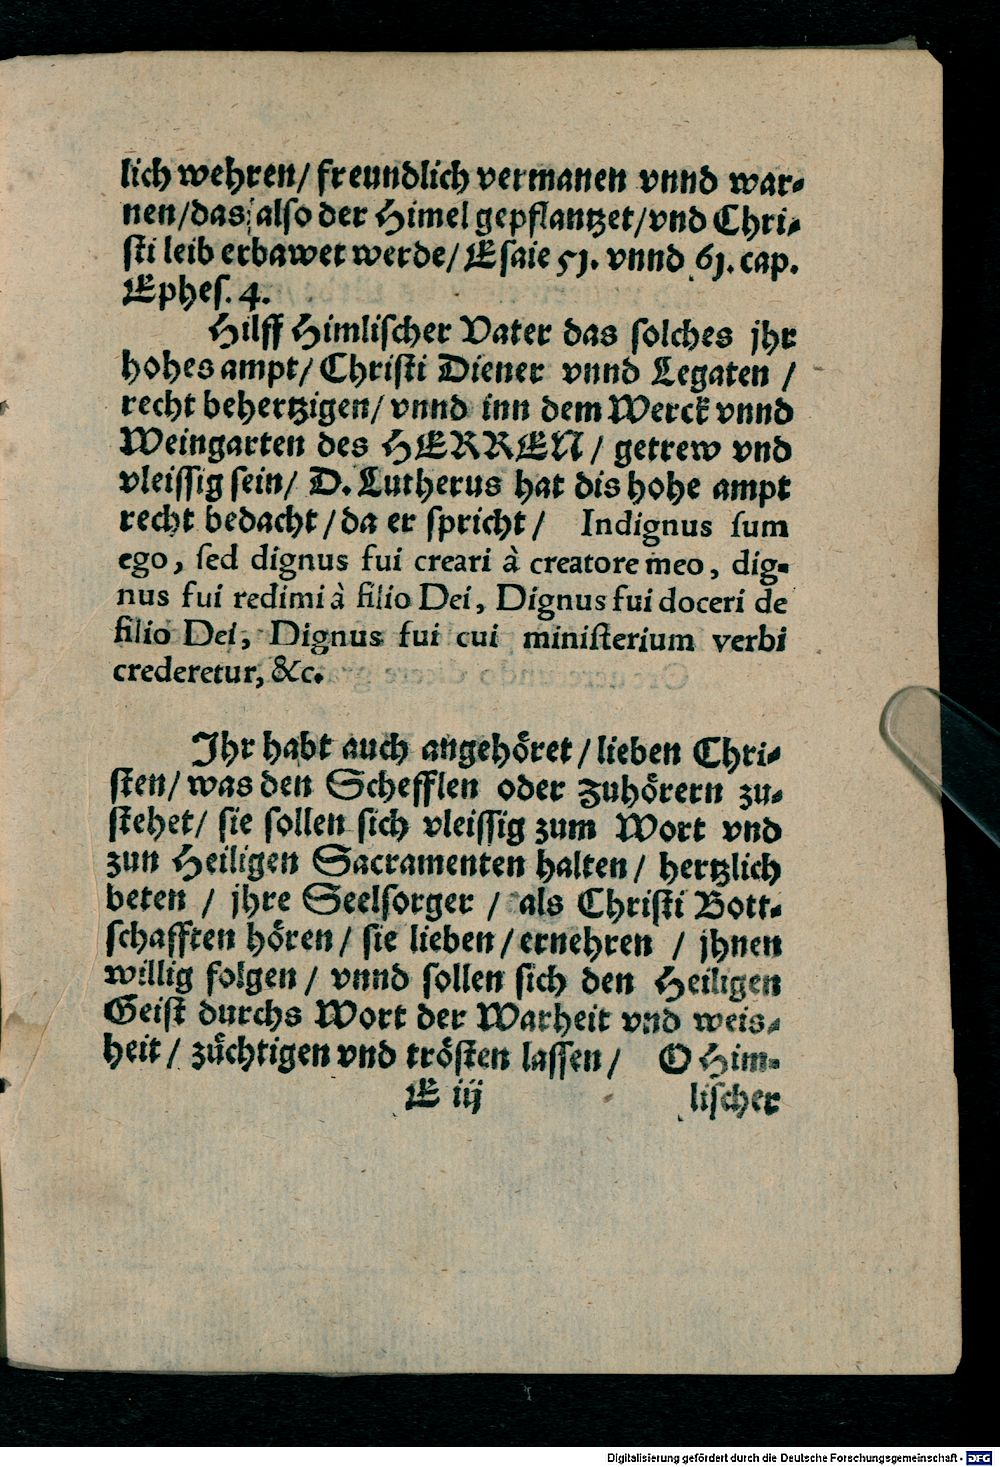 lich wehren/ freundlich vermanen vnnd war-
nen/das also der Himel gepflantzet/vnd Chri-
sti leib erbawet werde/ Esaie 51. vnnd 61. cap.
Ephes. 4.
Hilff Himlischer Vater das solches jhr
hohes ampt/ Christi Diener vnnd Legaten /
recht behertzigen/ vnnd inn dem Werck vnnd
Weingarten des HERREN/ getrew vnd
vleissig sein/ D. Lutherus hat dis hohe ampt
recht bedacht/da er spricht/ Indignus sum
ego, sed dignus fui creari à creatore meo, dig-
nus fui redimi à filio Dei, Dignus fui doceri de
filio Dei, Dignus fui cui ministerium verbi
crederetur, &c.
Ihr habt auch angehöret/lieben Chri-
sten/ was den Schefflen oder zuhörern zu-
stehet/ sie sollen sich vleissig zum Wort vnd
zun Heiligen Sacramenten halten/ hertzlich
beten / jhre Seelsorger / als Christi Bott-
schafften hören/ sie lieben/ernehren / jhnen
willig folgen/ vnnd sollen sich den Heiligen
Geist durchs Wort der Warheit vnd weis-
heit/ züchtigen vnd trösten lassen/ O Him-
E iij lischer
Digitalisierung gefördert durch die Deutsche Forschungsgemeinschaft - DFG